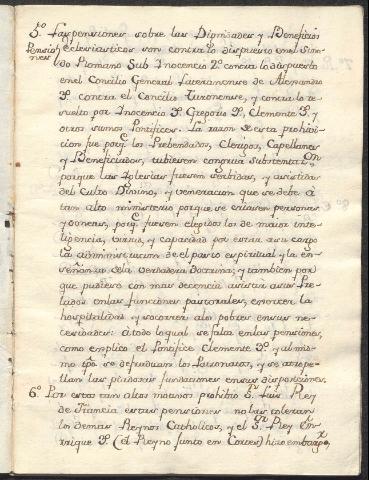 5º. Las pensiones sobre las Dignidades y Beneficios
Pensiones
Eclesiasticos son contra lo dispuesto en el Sino-
do Romano Sub Inocencio 2º contra lo dispuesto
en el Concilio General Lateranense de Alexandro
3º. contra el Concilio Turonense, y contra lo re-
suelto por Inocencio 3º Gregorio 9º, Clemente 3º, y
otros sumos Pontifices. La razon de esta prohivi-
cion fue porq.e los Prebendados, Clerigos, Capellanes
y Beneficiados, tubiesen congrua sustentac.on
porque las Iglesias fuesen servidas, y asistidas
del Culto Divino, y veneracion que se debe á
tan alto ministerio porque se criasen personas
y onores, porq.e fuesen elegidos los de maior inte-
ligencia, virtud, y capacidad por estar a su cargo
la administracion de el pasto espiritual y la en-
señanza de la verdadera Doctrina; y tambien por
que pudiesen con mas decencia asistir a sus Pre-
lados en las funciones pastorales, exercer la
hospitalidad y socorrer a los pobres en sus ne-
cesidades: á todo lo qual se falta en las pensiones,
como explico el Pontifice Clemente 3º. y al mis-
mo tpō se defraudan los Patronatos, y se atrope-
llan las piadosas fundaciones en sus disposiciones.
6º. Por estos tan altos motivos prohivió S.n Luis Rey
de Francia estas pensiones no las toleran
los demas Reynos Catholicos, y el S.or Rey En-
rrique 3º. (el Reyno junto en Cortes) hizo embargo,